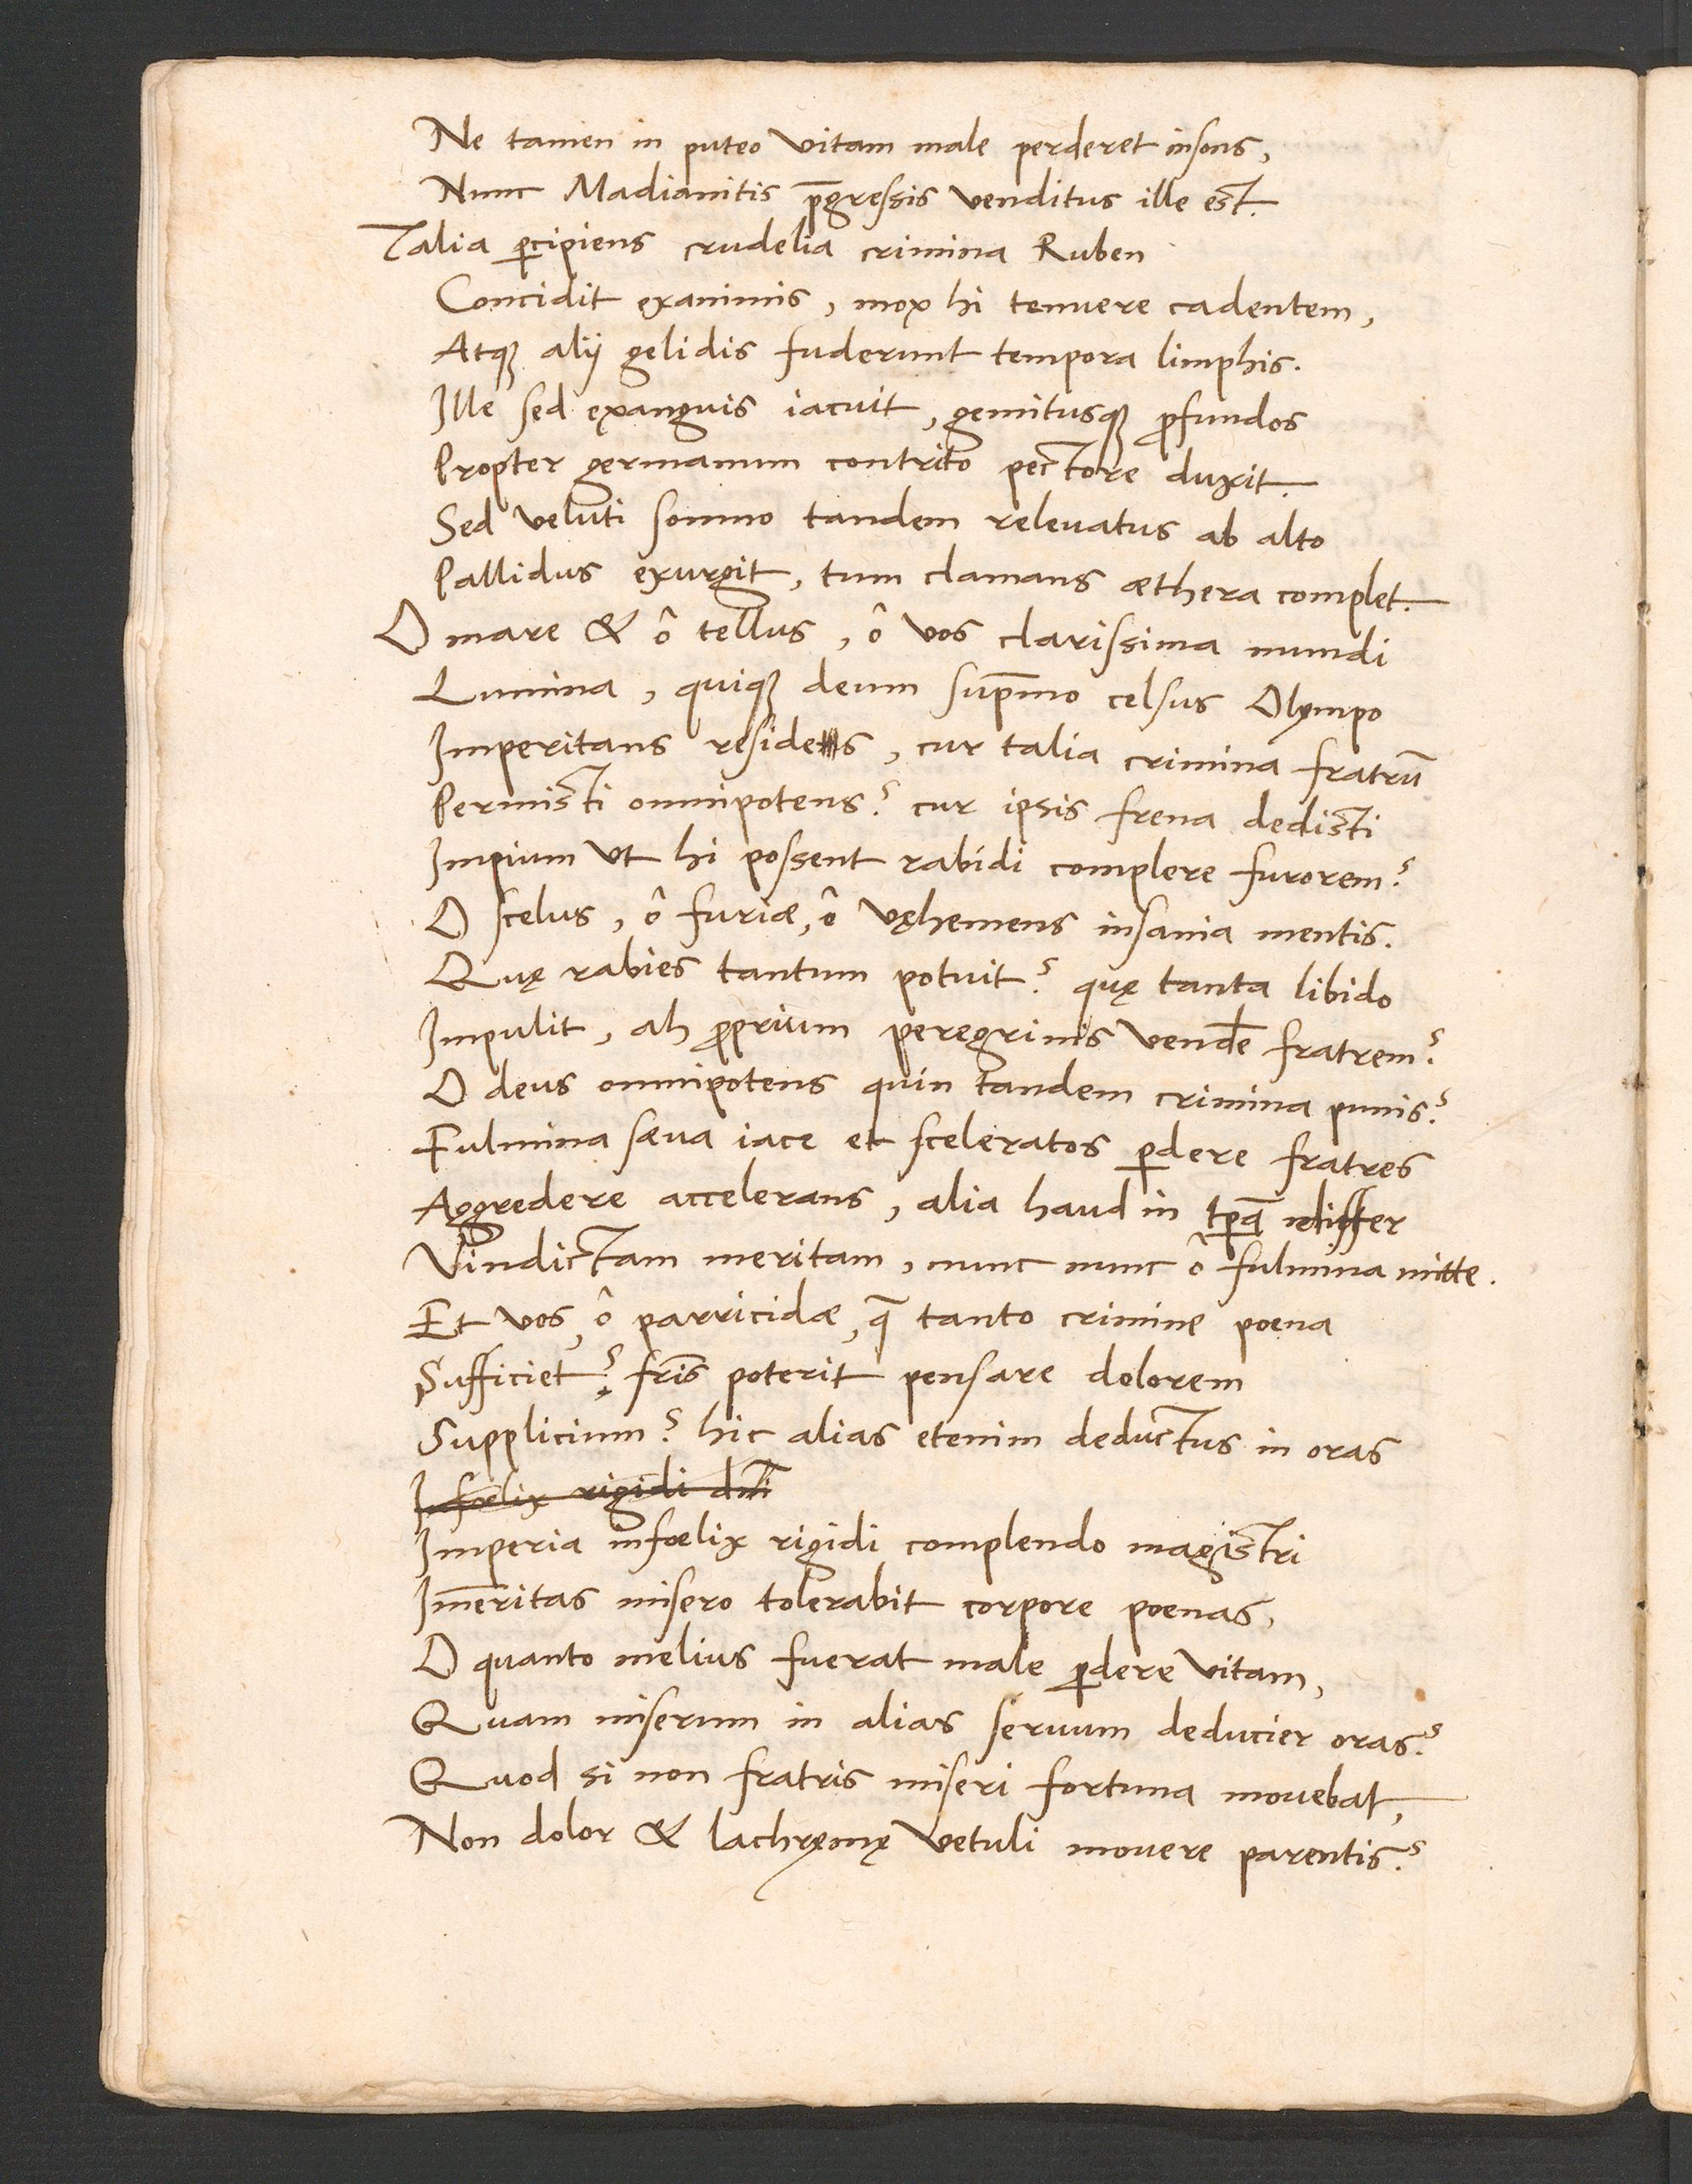 Ne tamen in puteo vitam male perderet insons,
Nunc Madianitis p̄gressis venditus ille est.
Talia ꝑcipiens crudelia crimina Ruben
Concidit exanimis, mox hi tenuere cadentem,
Atqꝫ alij gelidis fuderunt tempora limphis.
Ille sed exanguis iacuit, gemitusqꝫ ꝓfundos
Propter germanum contrito pectore duxit.
Sed veluti somno tandem releuatus ab alto
Pallidus exurgit, tum clamans æthera complet.
O mare & ô tellus, ô vos clarissima mundi
Lumina, quiqꝫ deum sup̄mo celsus Olympo
Imperitans resides, cur talia crimina fratrū
Permisti omnipotens? cur ipsis frena dedisti
Impium vt hi possent rabidi complere furorem?
O scelus, ô furiæ, ô vęhemens insania mentis.
Quę rabies tantum potuit? quę tanta libido
Impulit, ah ꝓprium peregrinis vendē fratrem?
O deus omnipotens quin tandem crimina punis?
Fulmina sæua iace et sceleratos ꝑdere fratres
Aggredere accelerans, alia haud in tꝑa differ
Vindictam meritam, nunc nunc ô fulmina mitte.
Et vos, ô parricidæ, q̄ tanto crimine poena
Sufficiet? fris̄ poterit pensare dolorem
Supplicium? hic alias etenim deductus in oras
Infœlix rigidi dn̄i
Imperia infœlix rigidi complendo magistri
Im̄eritas misero tolerabit corpore poenas,
O quanto melius fuerat male ꝑdere vitam,
Quam miserum in alias seruum deducier oras?
Quod si non fratris miseri fortuna mouebat,
Non dolor & lachrymę vetuli mouere parentis?